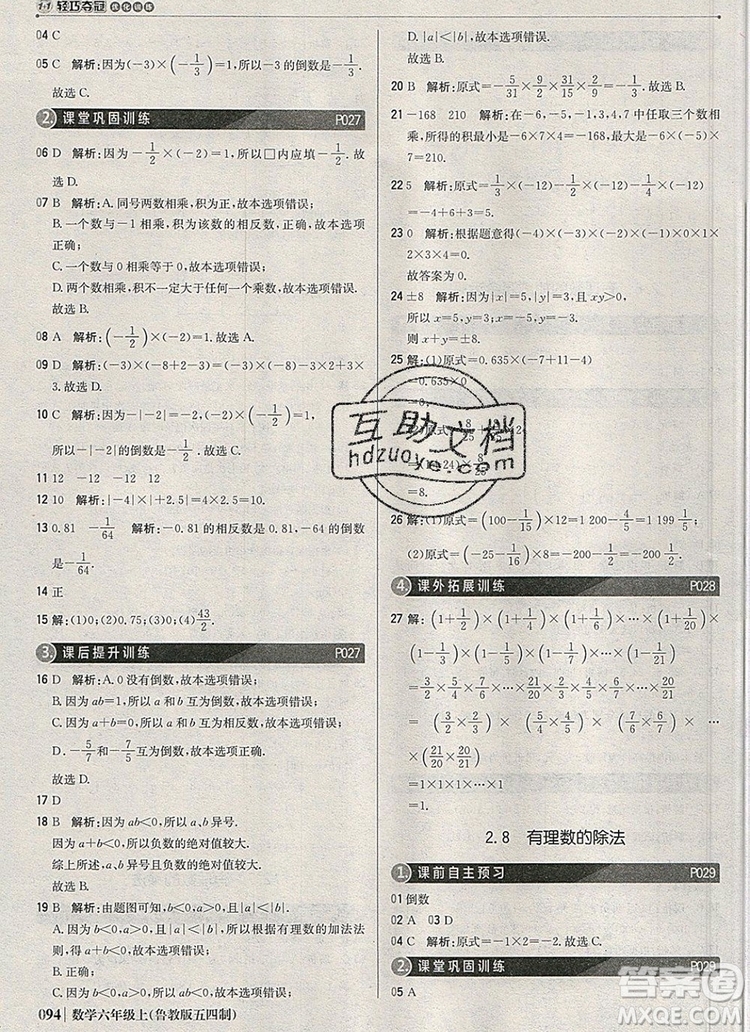 1+1 轻巧夺冠 优化训练
04 C
05 C 解析:因为(-3)×(-1/3)=1,所以-3的倒数是-1/3.
故选 C.
2. 课堂巩固训练 P027
06 D 解析:因为-1/2×(-2)=1,所以□内应填-1/2. 故
选 D.
07 B 解析:A.同号两数相乘,积为正,故本选项错误;
B.一个数与-1相乘,积为该数的相反数,故本选项
正确;
C.一个数与0相乘等于0,故本选项错误;
D.两个数相乘,积为1,故本选项错误;
故选 B.
08 A 解析:(-1/2)×(-2)=1.故选 A.
09 D 解析:原式=-8+2+1-2×3=-8+2+1+2×
3.故选 D.
10 C 解析:-|-2|=-2,-2×(-1/2)=1,
所以-|-2|的倒数是-1/2.故选 C.
11 12 -12 -12 12
12 10 解析:|-4|×|+2.5|=4×2.5=10.
13 0.81 -1/64 解析:-0.81的相反数是0.81,-64的倒数
是-1/64.
14 正
15 解:(1)0;(2)0.75;(3)43/2.
3. 课后提升训练 P027
16 D 解析:A.0没有倒数,故本选项错误;
B.因为ab=1,所以本选项错误;
C.因为a、b互为相反数,故本选项错误;
D.-5/7和-7/5互为倒数,故本选项正确.
故选 D.
17 D
18 B 解析:因为ab<0,所以a、b异号.
因为a+b<0,所以负数的绝对值较大.
综上所述,a、b异号且负数的绝对值较大.
故选 B.
19 B 解析:由题图可知,b<0,a>0,且|a|<|b|.
A.因为b<0,a>0,|a|<|b|,所以根据有理数的加法法
则,可知a+b<0,故本选项错误;
B.正确;
C.因为b<0,a>0,所以ab<0,故本选项错误;
094 数学六年级上(鲁教版五四制)
D.|a|<|b|,故本选项错误.
故选 B.
20 B 解析:原式=-5/31×9/2×31/15×2/9=-1/3.故选 B.
21 -168 210 解析:在-6,-5,-1,4,7中任取三个数相
乘,所得的积最小是-6×7×4=-168,最大是-6×(-5)×
7=210.
22 5
23 0 解析:根据题意得
故答案为0.
24 ±8 解析:因为|x|=5,|y|=3,且xy>0,
所以x=5,y=3或x=-5,y=-3.
则x+y=±8.
25 解:(1)原式=0.635×(-7+11-4)
=0.635×0
=0.
=8.
26 解:(1)原式=(100-1/15)×12=1 200-4/5=1 199 1/5;
4. 课外拓展训练 P028
27 解:(1+1/2)×(1+1/4)×(1+1/6)×…×(1+1/20)×
(1-1/3)×(1-1/5)×(1-1/7)×…×(1-1/21)
=3/2×5/4×7/6×…×21/20×2/3×4/5×6/7×…×20/21
=(3/2×2/3)×(5/4×4/5)×(7/6×6/7)×…×
(21/20×20/21)
=1×1×1×…×1
=1.
2.8 有理数的除法
1. 课前自主预习 P029
01 倒数
02 A 03 D
04 C 解析:原式=-1×2=-2.故选 C.
2. 课堂巩固训练 P029
05 A
互助文档
hdzuoye.com
答案圈
MXQE.COM